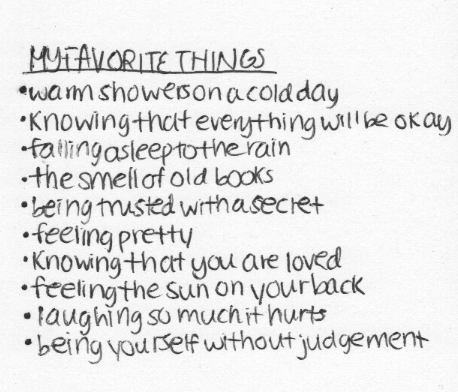 MY FAVORITE THINGS
•warm showers on a cold day
•Knowing that everything will be okay
•falling asleep to the rain
•the smell of old books
•being trusted with a secret
•feeling pretty
•Knowing that you are loved
•feeling the sun on your back
•laughing so much it hurts
•being yourself without judgement